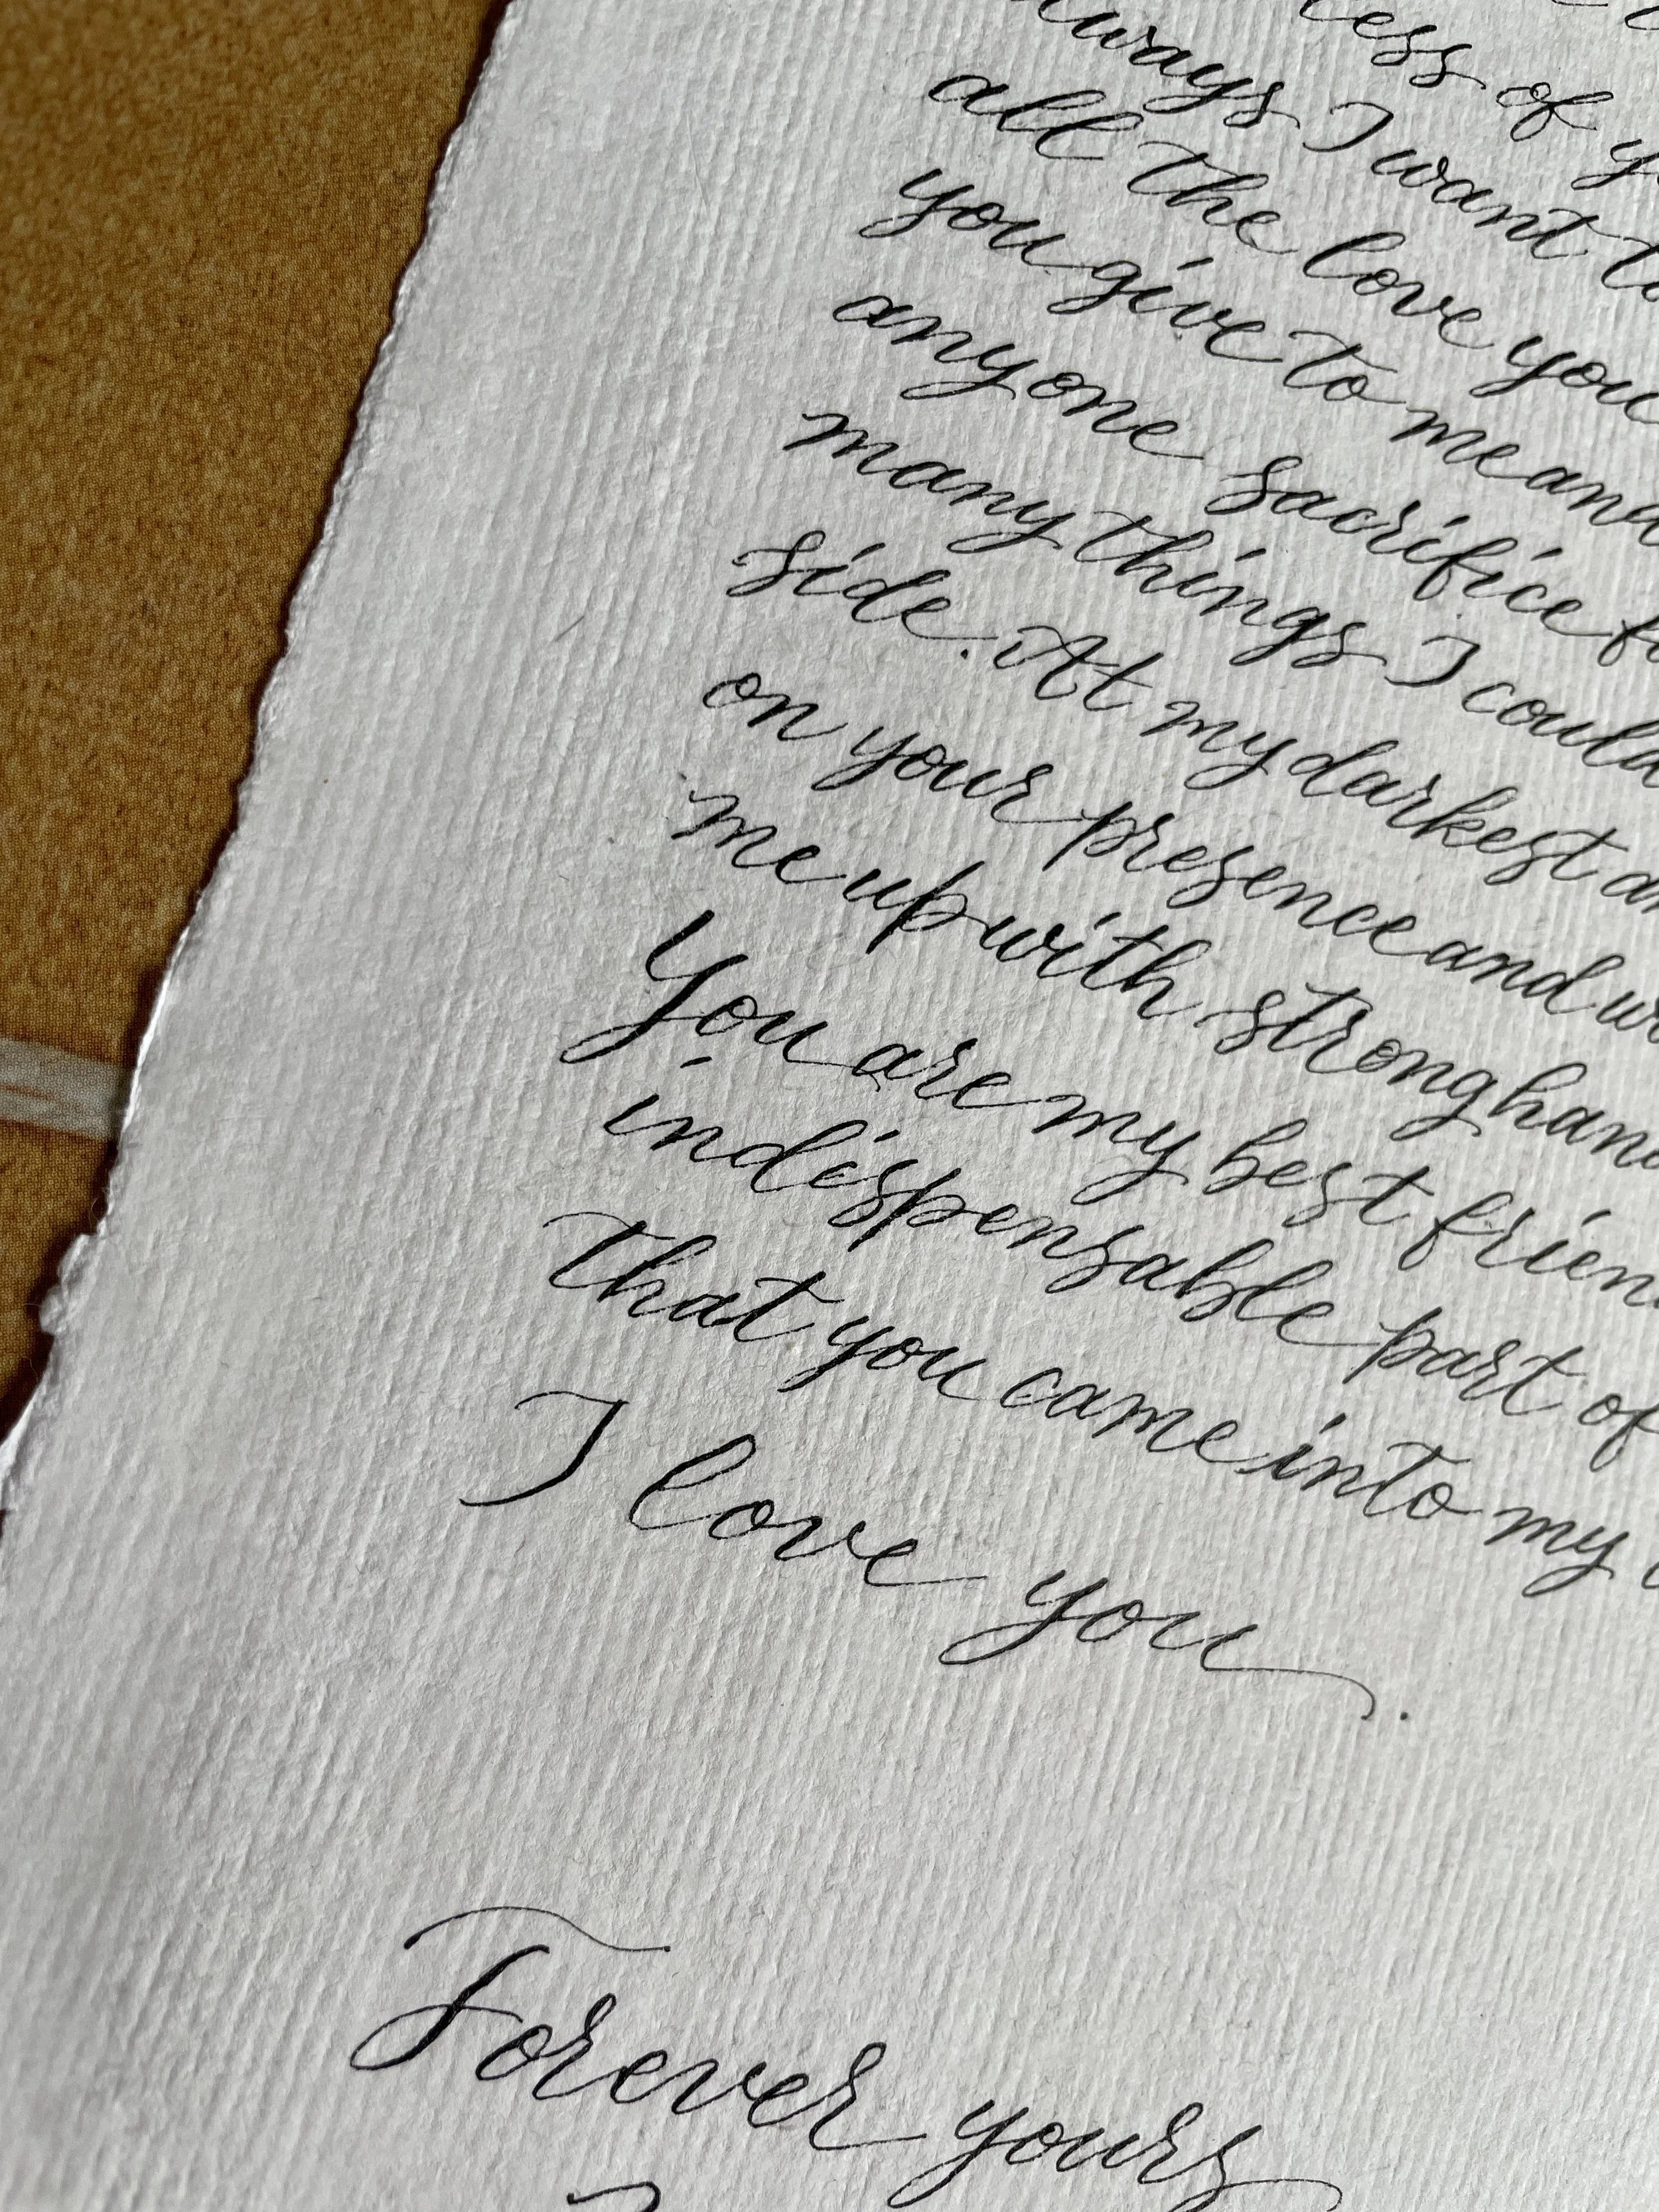 of
always I want
all the love you
you give to me and
anyone sacrifice
many things I could
side. At my darkest
on your presence and
me up with strong
You are my best
indispensable part of
that you came into my
I love you.
Forever yours